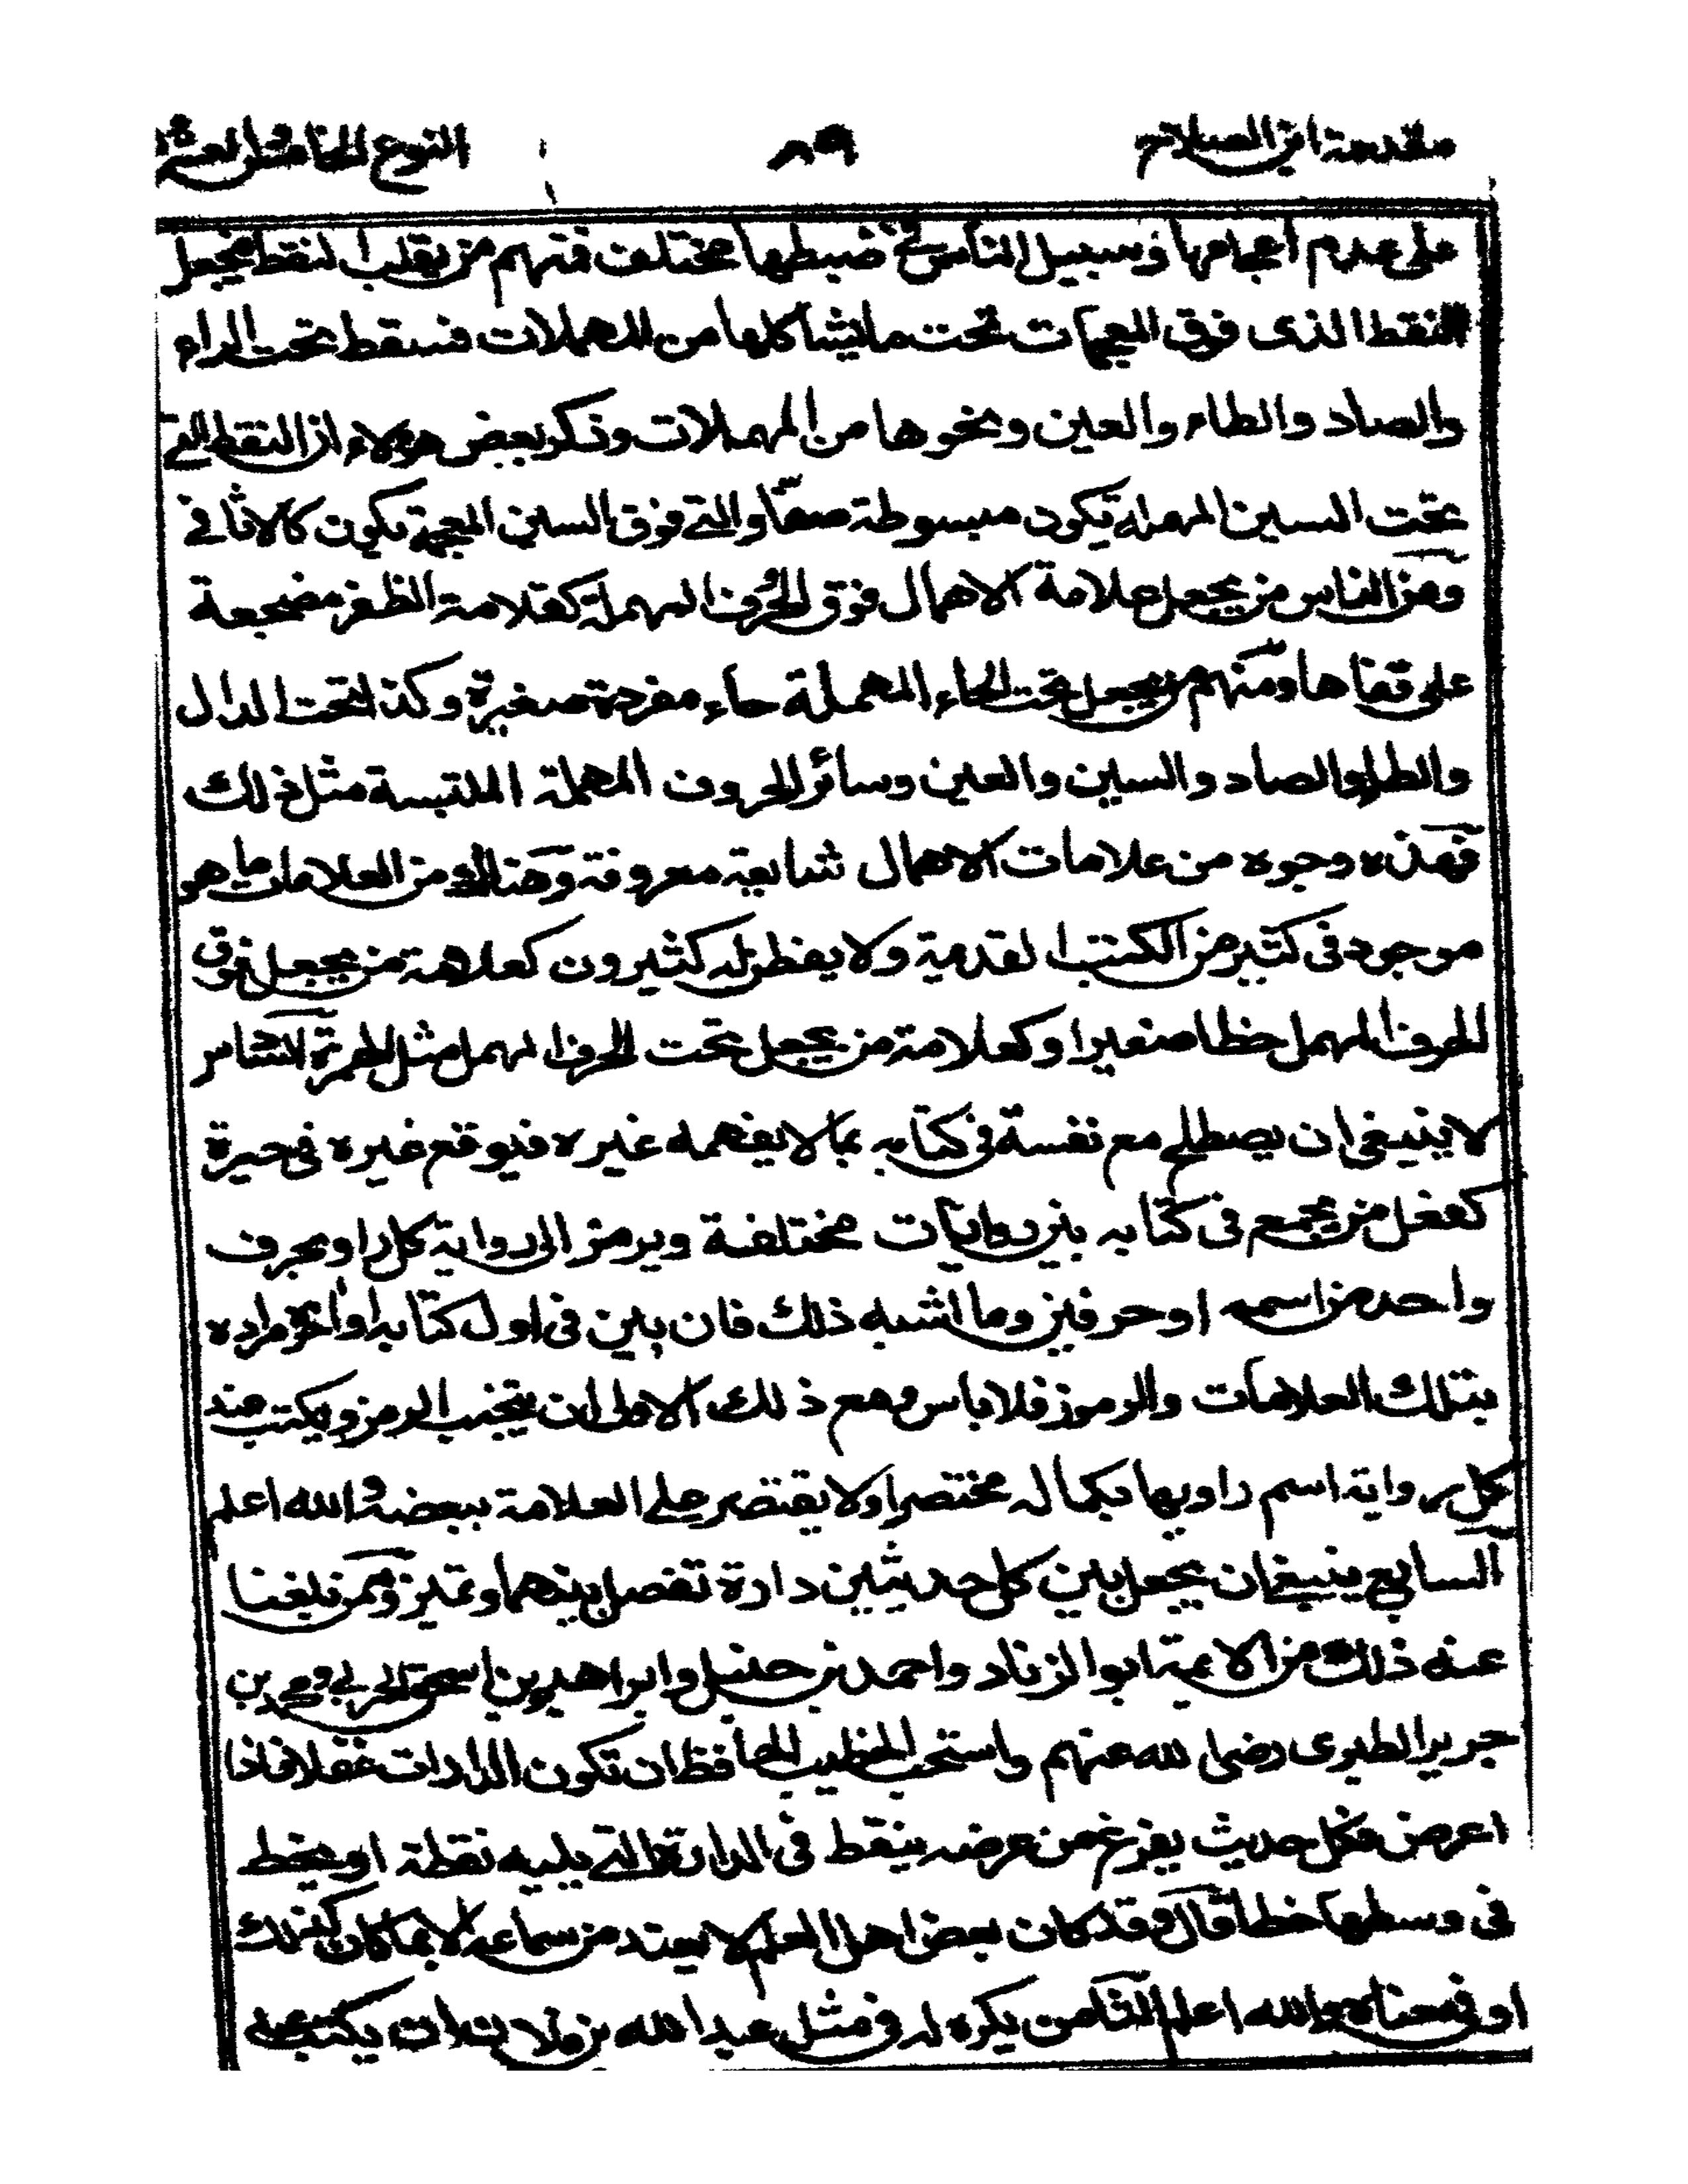 مقدمة ابن الصلاح ٨٩ النوع الخامس والعشر
على عدم اعجامها وسبيل الناس فى ضبطها مختلف فمنهم من يقلب النقط فيجعل
النقط الذى فوق المعجمات تحت ما يشاكلها من المهملات فينقط تحت الراء
والصاد والطاء والعين ونحوها من المهملات وذكر بعض هؤلاء ان النقط التى
تحت السين المهملة تكون مبسوطة صفا والتى فوق السين المعجمة تكون كالاثافى
ومن الناس من يجعل علامة الاهمال فوق الحروف المهملة كقلامة الظفر مضجعة
على قفاها ومنهم من يجعل تحت الحاء المهملة حاء مفردة صغيرة وكذا تحت الدال
والطاء والصاد والسين والعين وسائر الحروف المهملة الملتبسة مثل ذلك
فهذه وجوه من علامات الاهمال شايعة معروفة وهناك من العلامات ما هو
موجود فى كثير من الكتب القديمة ولا يفطن له كثيرون كعلامة من يجعل فوق
الحرف المهمل خطا صغيرا وكعلامة من يجعل تحت الحرف المهمل مثل الهمزة السادس
لا ينبغى ان يصطلح مع نفسه فى كتابه بما لا يفهمه غيره فيوقع غيره فى حيرة
كفعل من يجمع فى كتابه بين روايات مختلفة ويرمز الى رواية كل راو بحرف
واحد من اسمه او حرفين وما اشبه ذلك فان بين فى اول كتابه او اخره مراده
بتلك العلامات والرموز فلا باس ومع ذلك الاولى ان يتجنب الرمز ويكتب عند
كل رواية اسم راويها بكماله مختصرا ولا يقتصر على العلامة ببعضه والله اعلم
السابع ينبغى ان يجعل بين كل حديثين دارة تفصل بينهما وتميز وممن بلغنا
عنه ذلك من الائمة ابو الزناد واحمد بن حنبل وابراهيم بن اسحق الحربى ومحمد بن
جرير الطبرى رضى الله عنهم واستحب الخطيب الحافظ ان تكون الدارات غفلا فاذا
اعرض فكل حديث يفرغ من عرضه ينقط فى الدارة التى يليه نقطة او يخط
فى وسطها خطا قال وقد كان بعض اهل العلم لا يعتد من سماعه الا بما كان كذلك
او فى معناه والله اعلم الثامن يكره له فى مثل عبد الله بن فلان بن فلان ان يكتب عبد